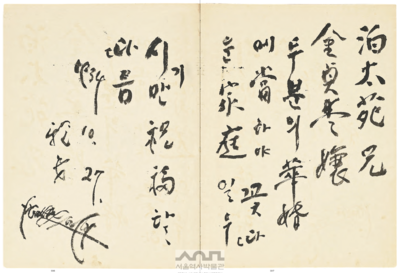 泊太苑 兄
金貞愛 孃
두분의 華婚
에 當하야 꽃다
운 家庭 일우
시기만 祝福할
따름
1934. 10. 27.
서울역사박물관